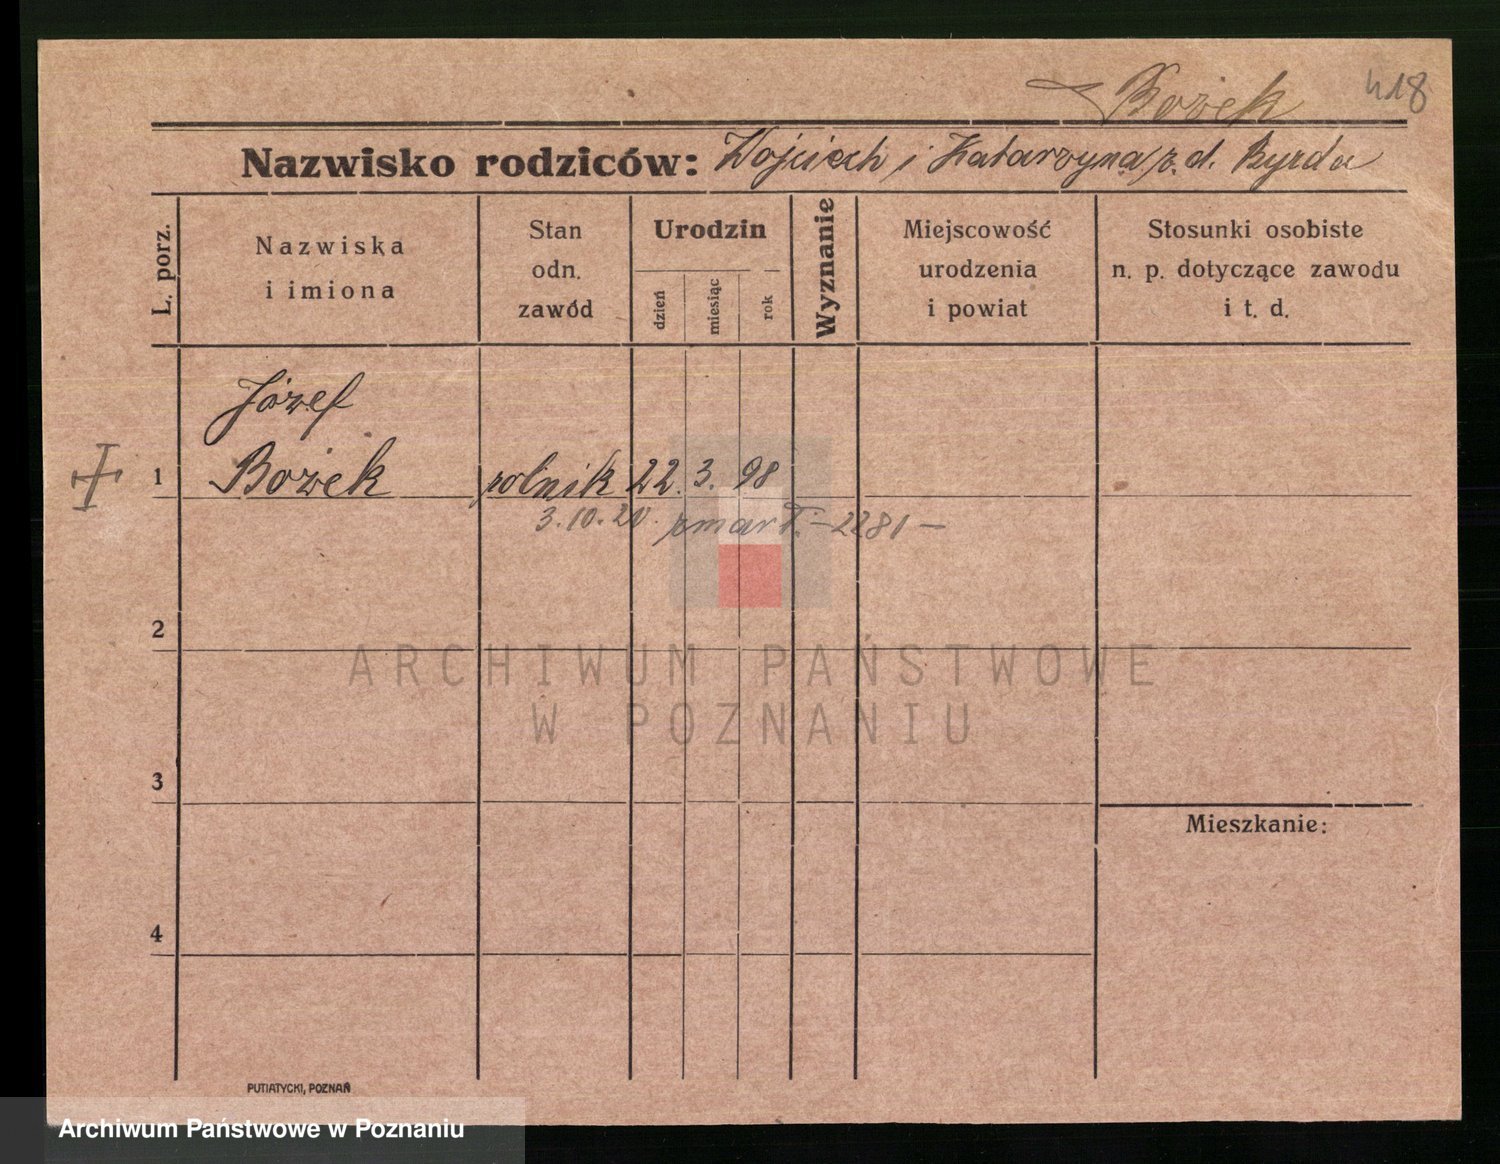 Bożek 418
Nazwisko rodziców: Wojciech i Katarzyna z d. Byrda
L. porz.
Nazwiska
i imiona
Stan
odn.
zawód
Urodzin
dzień
miesiąc
rok
Wyznanie
Miejscowość
urodzenia
i powiat
Stosunki osobiste
n. p. dotyczące zawodu
i t. d.
Józef
1 Bożek rolnik 22. 3. 98
3.10.20. zmarł. – 2281 –
2
ARCHIWUM PAŃSTWOWE
W POZNANIU
3
Mieszkanie:
4
PUTIATYCKI, POZNAŃ
Archiwum Państwowe w Poznaniu